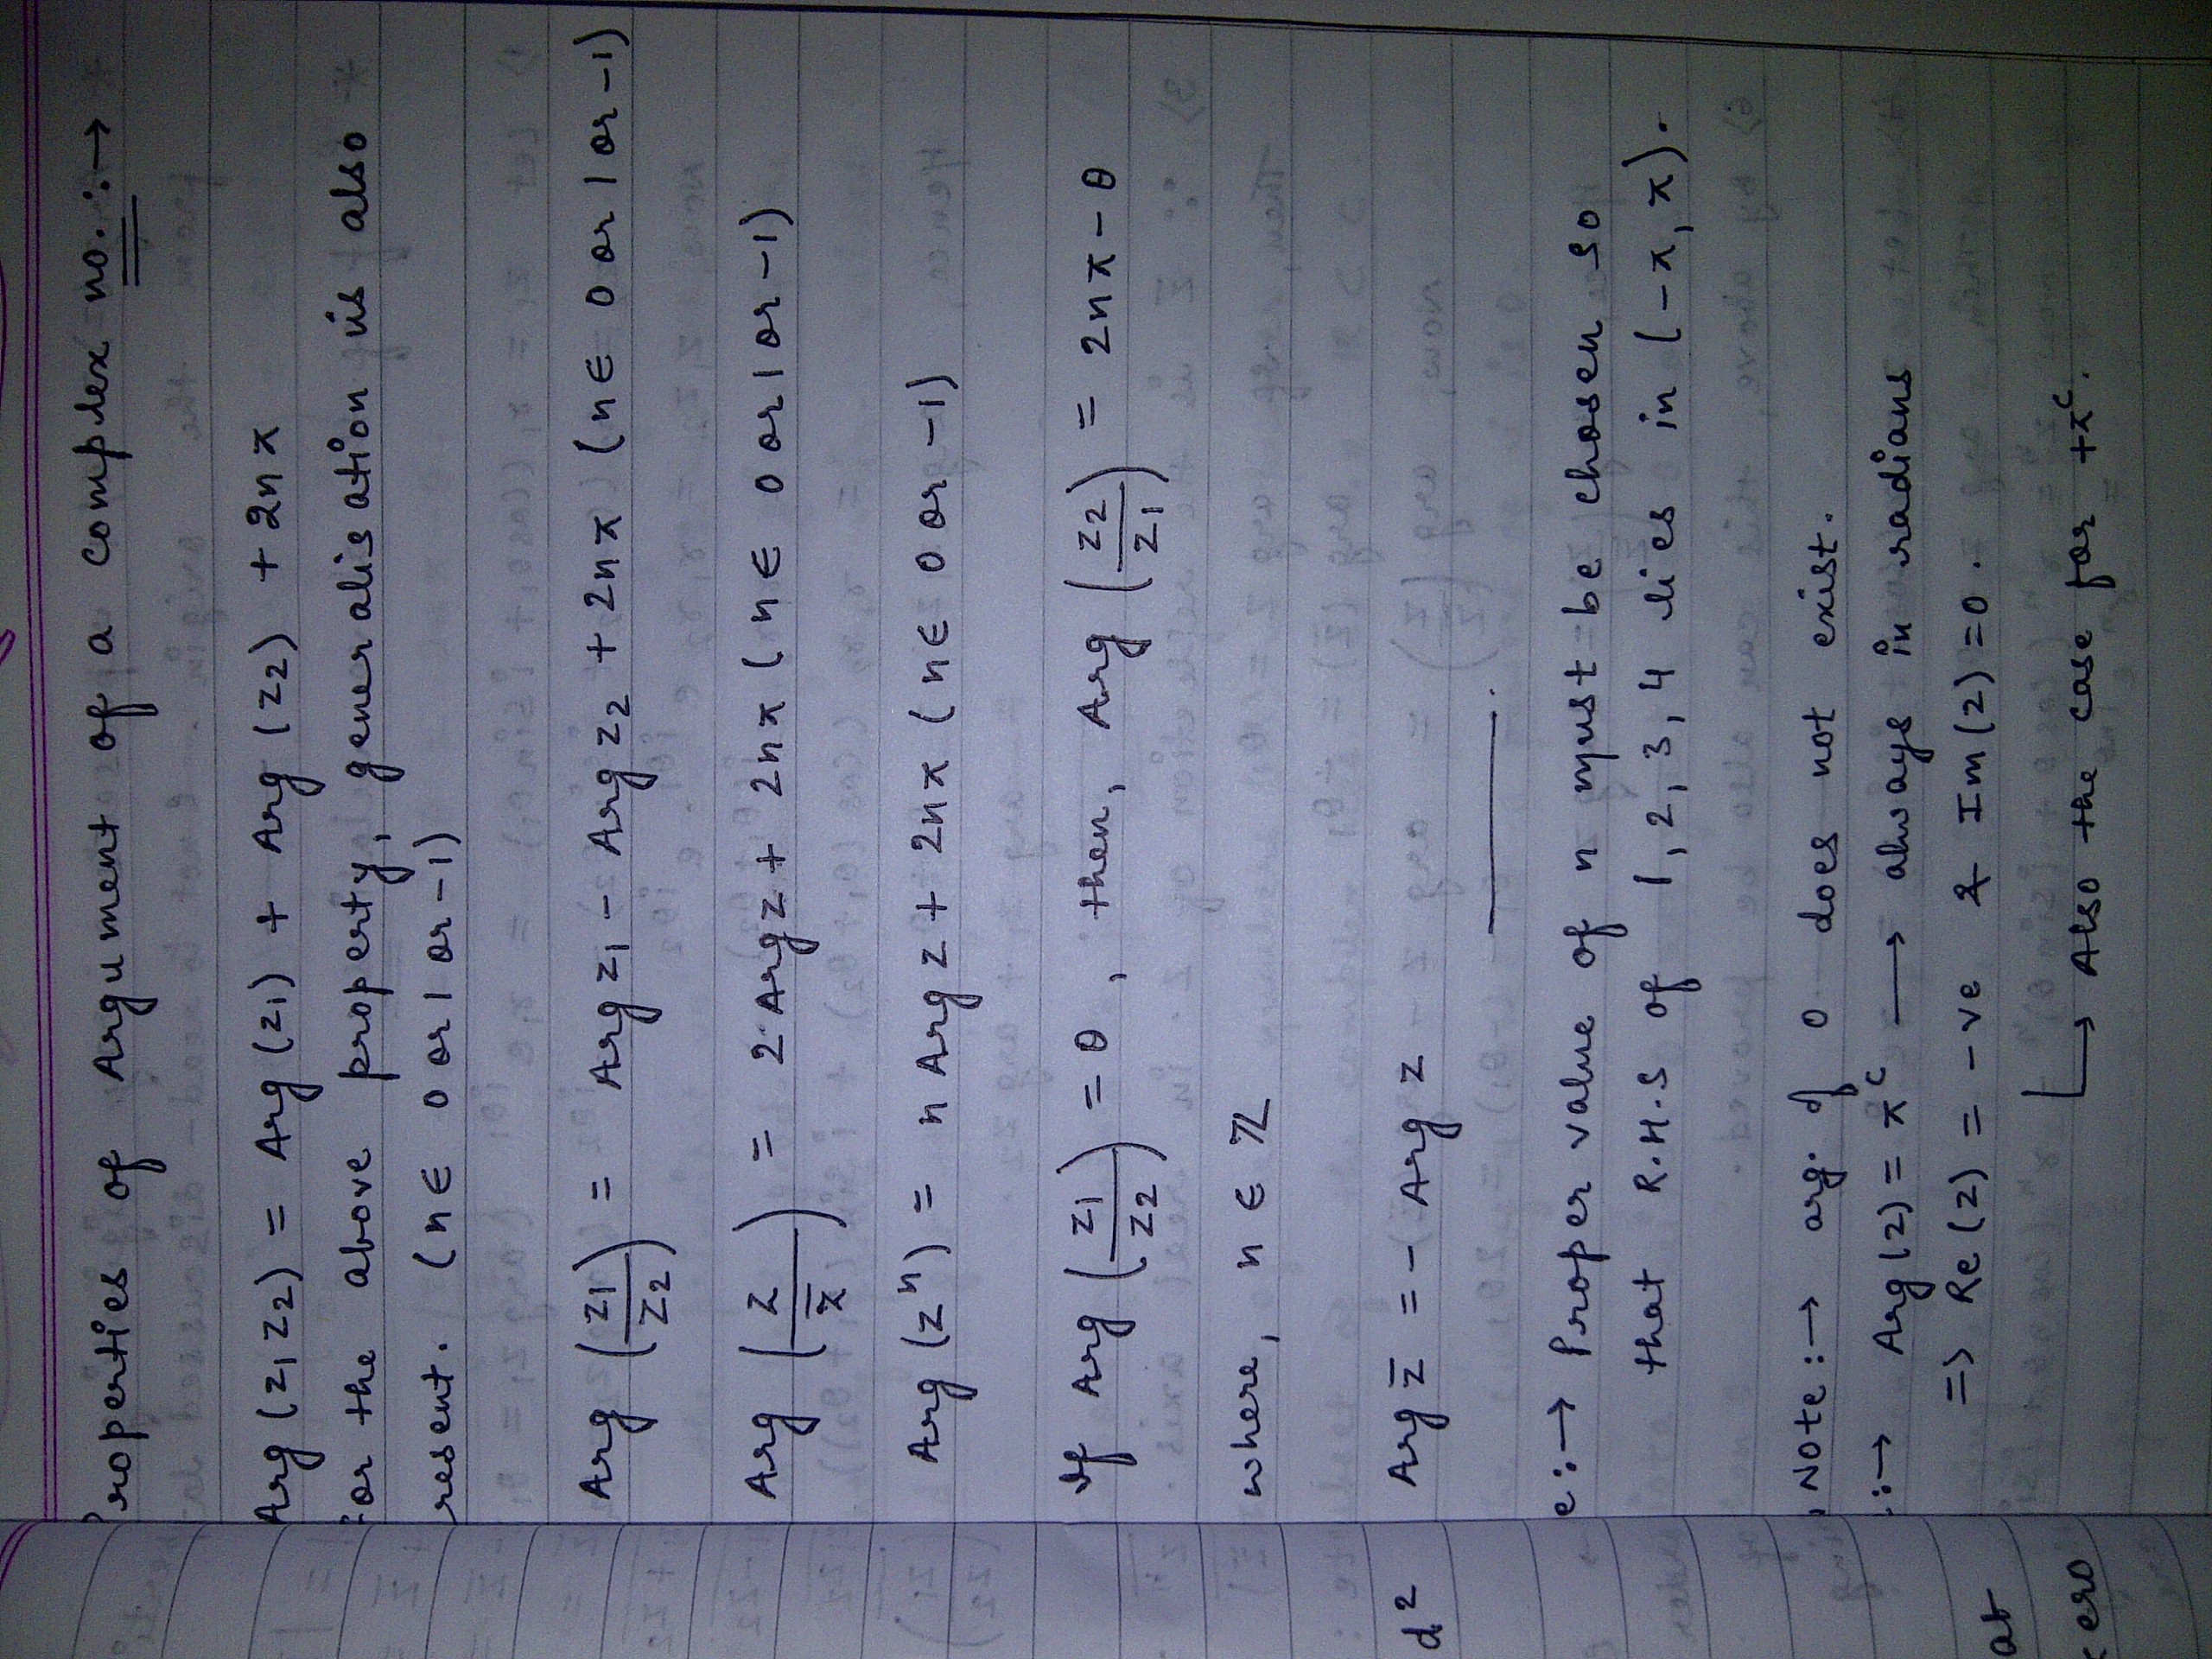 roperties of Argument of a complex no. :→
Arg (z₁z₂) = Arg (z₁) + Arg (z₂) + 2nπ
For the above property, generalisation is also
resent. (n ∈ 0 or 1 or -1)
Arg (z₁/z₂) = Arg z₁ - Arg z₂ + 2nπ (n ∈ 0 or 1 or -1)
Arg (z/z̄) = 2 Arg z + 2nπ (n ∈ 0 or 1 or -1)
Arg (zⁿ) = n Arg z + 2nπ (n ∈ 0 or -1)
If Arg (z₁/z₂) = θ, then, Arg (z₂/z₁) = 2nπ - θ
where, n ∈ ℤ
d²
Arg z̄ = - Arg z
e :→ Proper value of n must be chosen so
that R.H.S of 1, 2, 3, 4 lies in (-π, π).
Note :→ arg. of 0 does not exist.
:→ Arg (z) = πᶜ → always in radians
=> Re (z) = -ve & Im (z) = 0.
at
↳ Also the case for +πᶜ.
zero